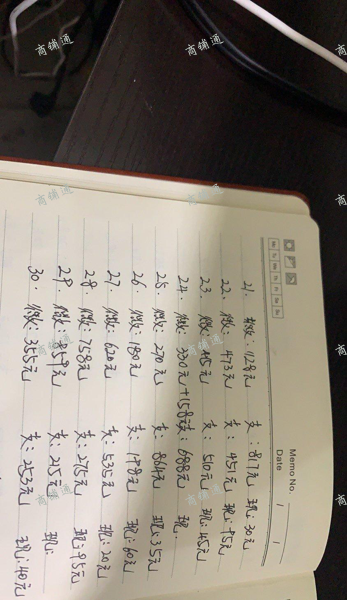 Memo No.
Date / /
Mo Tu We Th Fr Sa Su
21. 微: 1128元 支: 817元 现: 30元
22. 微: 473元 支: 451元 现: 95元
23. 微: 支: 510元 现: 45元
24. 微: 330元+158元 支: 688元 现:
25. 微: 270元 支: 864元 现: 35元
26. 微: 180元 支: 198元 现: 60元
27. 微: 620元 支: 535元 现: 20元
28. 微: 758元 支: 275元 现: 95元
29. 微: 859元 支: 215元 现:
30. 微: 355元 支: 253元 现: 40元
商铺通
商铺通
商铺通
商铺通
商铺通
商铺通
商铺通
商铺通